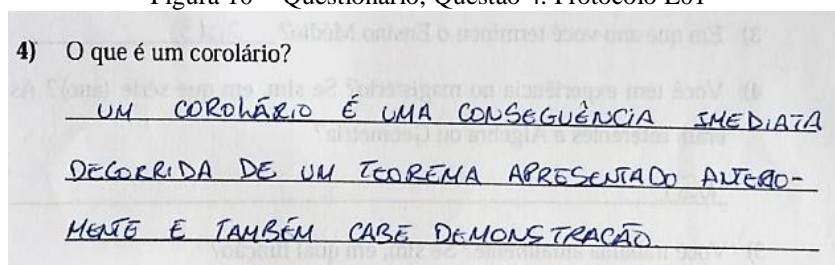 Figura 10 – Questionário, Questão 4. Protocolo E01
4) O que é um corolário?
UM COROLÁRIO É UMA CONSEGUÊNCIA IMEDIATA
DECORRIDA DE UM TEOREMA APRESENTADO ANTERIO-
MENTE E TAMBÉM CABE DEMONSTRAÇÃO.